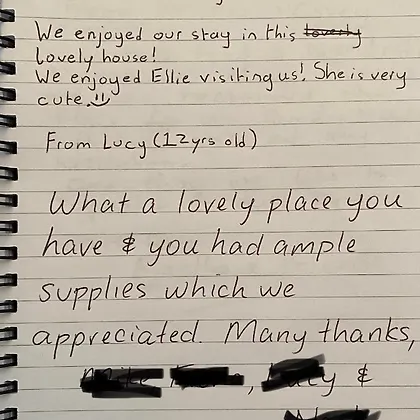 We enjoyed our stay in this
lovely house!
We enjoyed Ellie visiting us! She is very
cute. ☺
From Lucy (12yrs old)
What a lovely place you
have & you had ample
supplies which we
appreciated. Many thanks,
, &